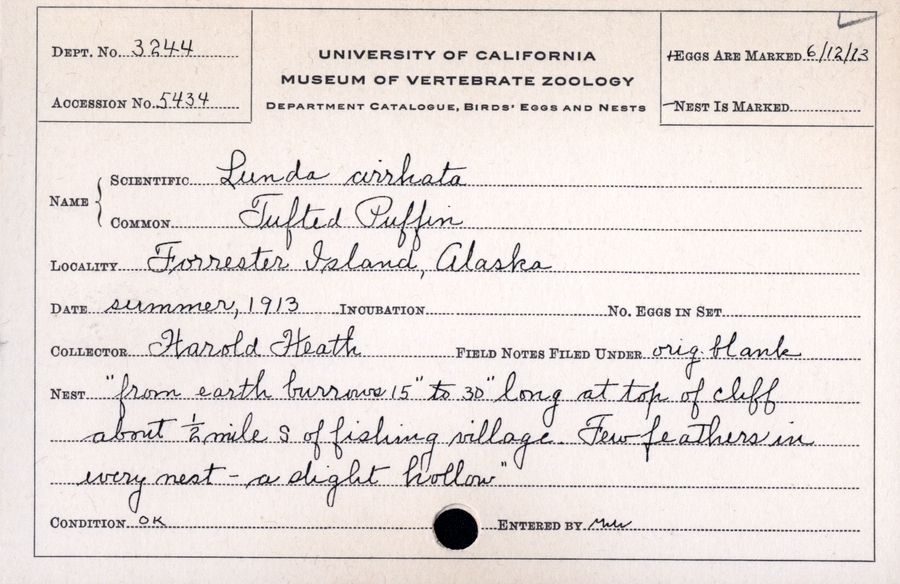 Dept. No. 3244
Accession No. 5434
University of California
Museum of Vertebrate Zoology
Department Catalogue, Birds' Eggs and Nests
Eggs Are Marked 6/12/13
Nest Is Marked
Name
Scientific Lunda cirrhata
Common Tufted Puffin
Locality Forrester Island, Alaska
Date summer, 1913 Incubation No. Eggs in Set
Collector Harold Heath Field Notes Filed Under orig. blank
Nest "from earth burrows 15" to 30" long at top of cliff
about ½ mile S of fishing village. Few feathers in
every nest - a slight hollow"
Condition OK Entered by